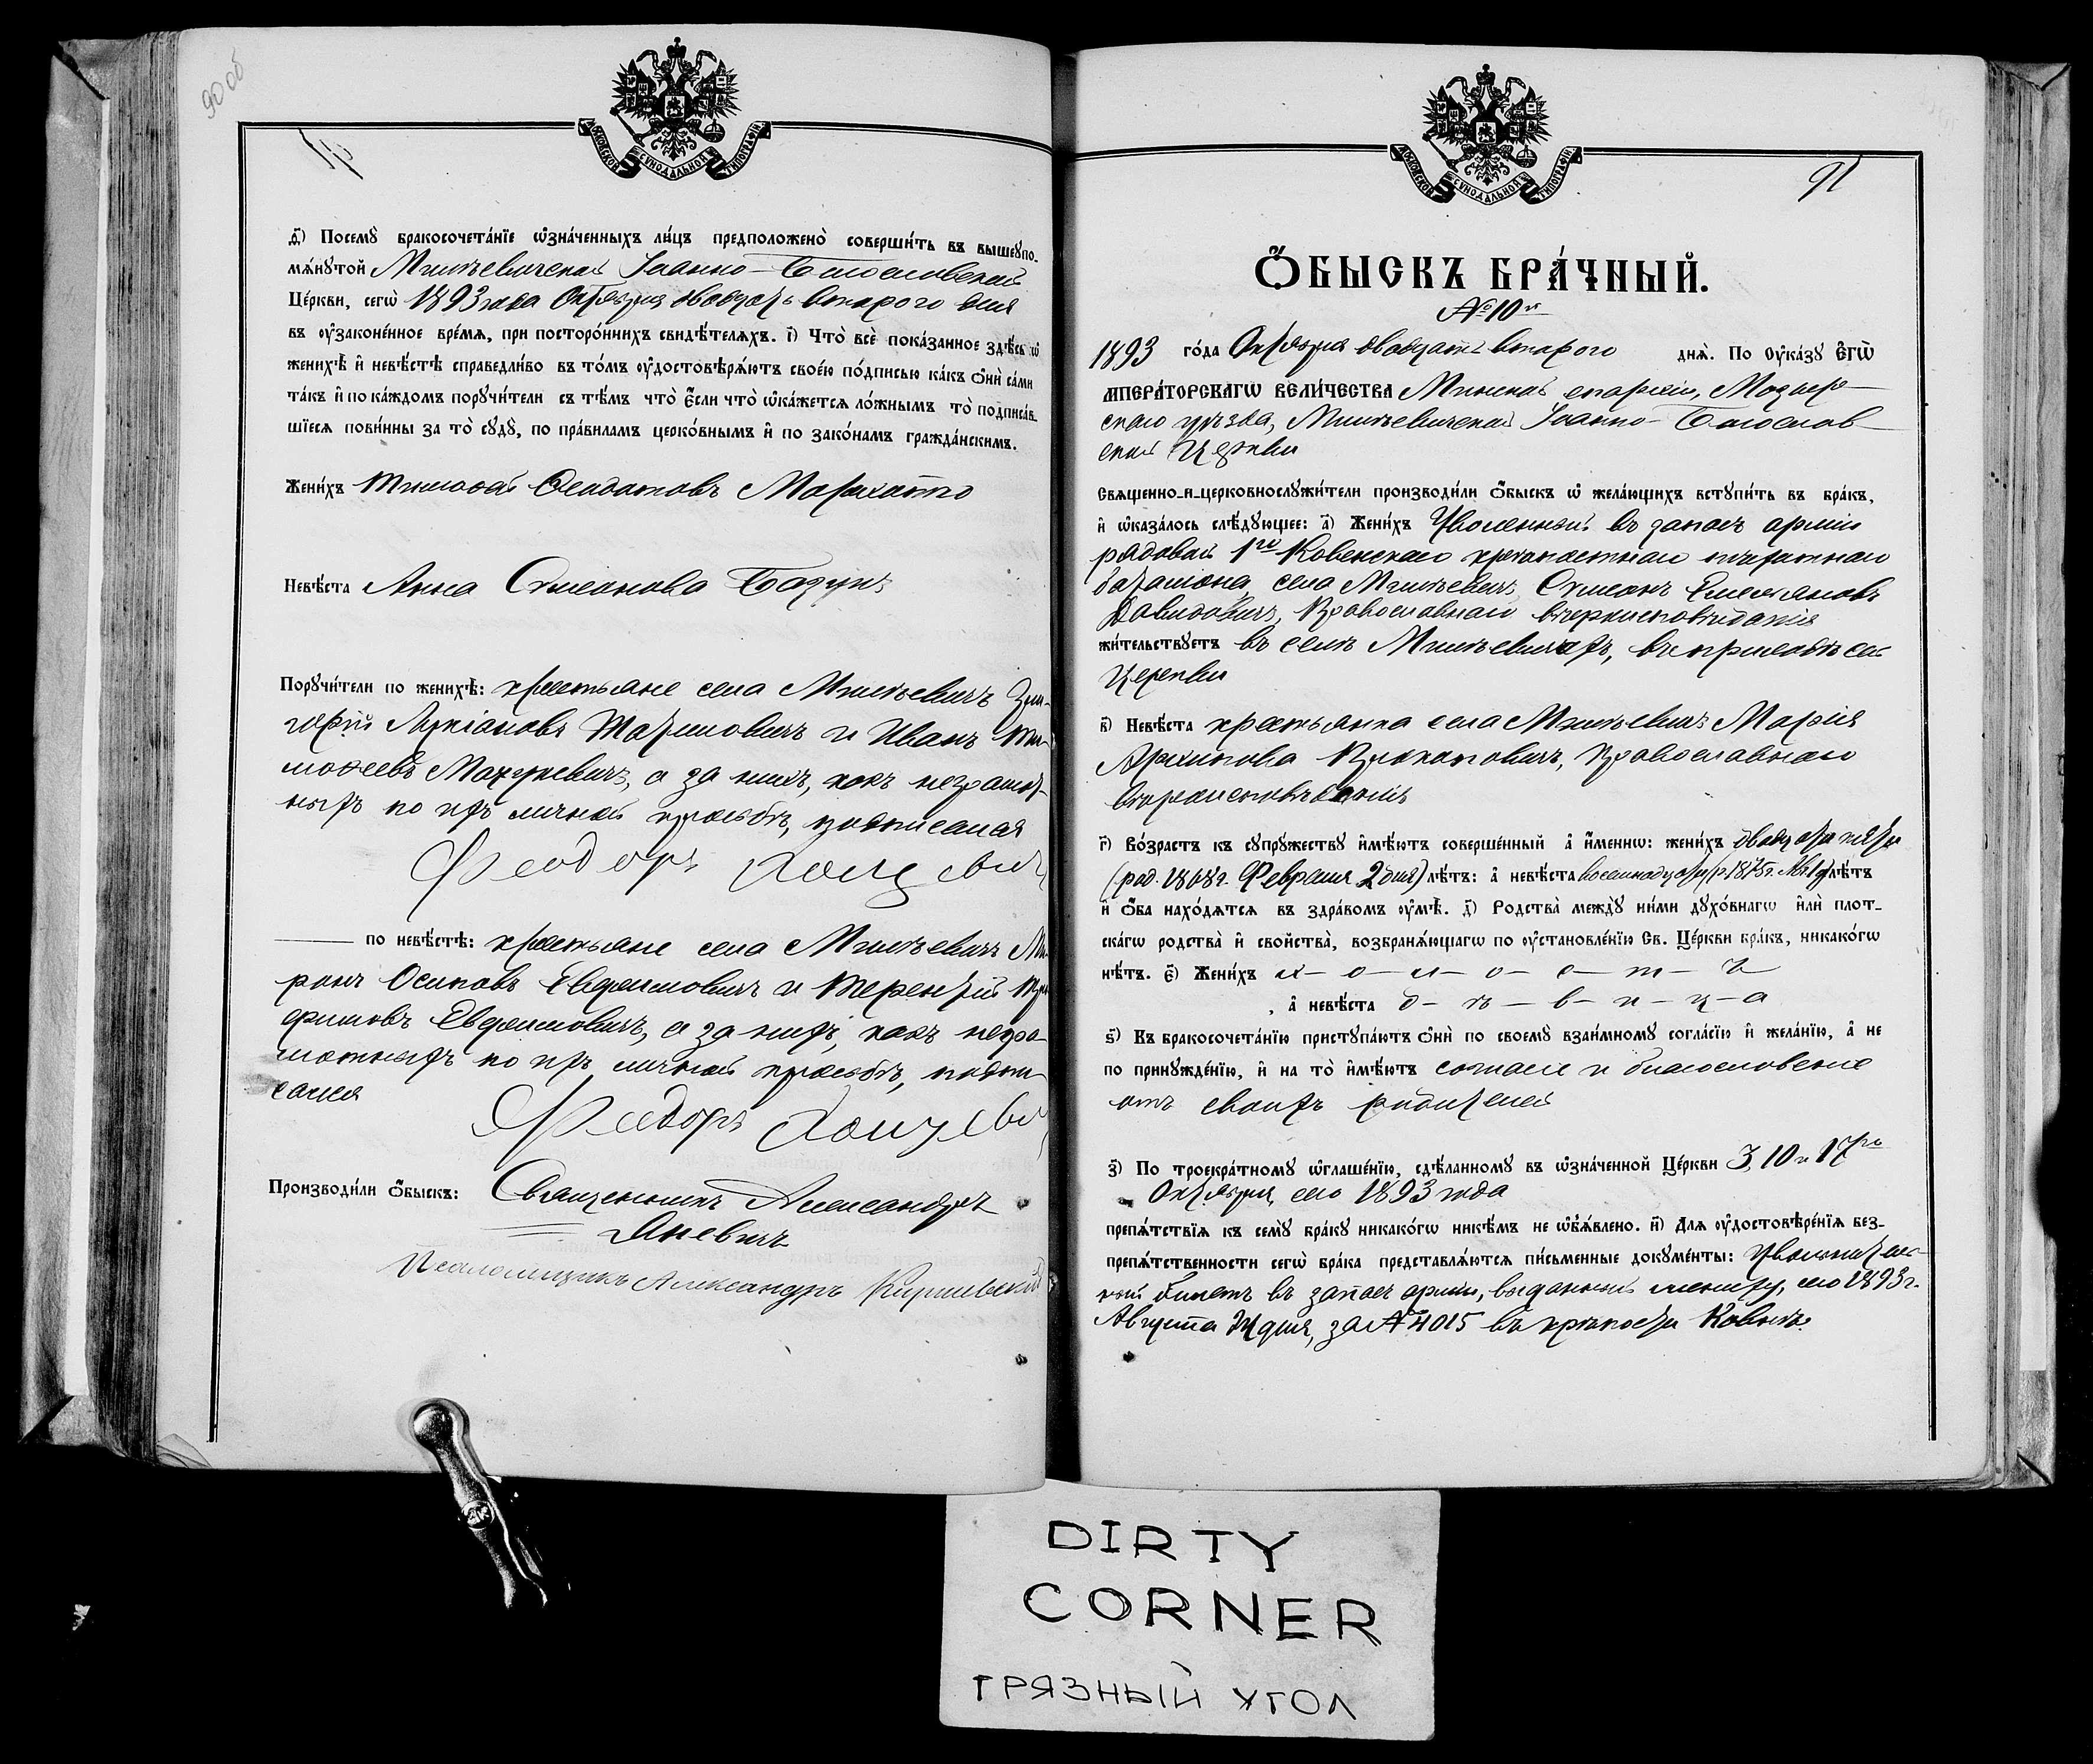 90 об
МОСКОВСКОЙ СѴНОДАЛЬНОЙ ТИПОГРАФІИ.
ѳ҃) Посемꙋ бракосочета́нїе ѡ҆зна́ченныхъ ли́цъ предположено̀ соверши́ть въ вышеꙋпо-
мѧ́нꙋтой Милѣвичской Іоанно-Богословской
Це́ркви, сегѡ̀ 1893 года Октября двадцать второго дня
въ ᲂу҆зако́не́нное вре́мѧ, при посторо́ннихъ свидѣ́телѧхъ. і҃) Что̀ всѐ пока́занное здѣ́сь ѡ҆
женихѣ̀ и҆ невѣ́стѣ справедли́во въ то́мъ ᲂу҆достовѣрѧ́ютъ своє́ю по́дписью ка́къ ѻ҆нѝ са́ми
та́къ и҆ по ка́ждомъ порꙋчи́тели съ тѣ́мъ что̀ є҆́сли что̀ ѡ҆ка́жетсѧ ло́жнымъ то̀ подписа́в-
шїесѧ пови́нны за то̀ сꙋдꙋ̀, по пра́виламъ церко́внымъ и҆ по зако́намъ гражда́нскимъ.
Жени́хъ Тимофей Феодотовъ
Невѣ́ста Анна Симеонова Базунъ
Порꙋчи́тели по женихѣ̀: крестьяне села Милѣвичъ Гри-
горій Лукіановъ и Иванъ Ти-
мофеевъ а за нихъ, какъ неграмот-
ныхъ по ихъ личной просьбѣ, подписался
Феодоръ
по невѣ́стѣ: крестьяне села Милѣвичъ Ми-
ронъ Осиповъ Евфимовичъ и Терентій Тро-
фимовъ Евфимовичъ, а за нихъ, какъ негра-
мотныхъ по ихъ личной просьбѣ, подпи-
сался
Феодоръ
Производи́ли ѻ҆́быскъ: Священникъ Александръ
Яневичъ
Псаломщикъ Александръ
МОСКОВСКОЙ СѴНОДАЛЬНОЙ ТИПОГРАФІИ.
91
Ѻ҆́БЫСКЪ БРА́ЧНЫЙ.
№ 10й
1893 го́да Октября двадцать второго днѧ̀. По ᲂу҆ка́зꙋ Є҆ГѠ̀
ИМПЕРА́ТОРСКАГѠ ВЕЛИ́ЧЕСТВА Минской епархіи, Мозыр-
скаго уѣзда, Милѣвичской Іоанно-Богослов-
ской Церкви
Свѧщенно-и-церковнослꙋжи́тели производи́ли ѻ҆́быскъ ѡ҆ жела́ющихъ встꙋпи́ть въ бра́къ,
и҆ ѡ҆каза́лось слѣ́дꙋющее: а҃) Жени́хъ Уволенный въ запасъ арміи
рядовой 1го Ковенскаго крѣпостнаго пѣхотнаго
баталіона, села Милѣвичъ, Симеонъ Емельяновъ
Давидовичъ, Православнаго вѣроисповѣданія
жи́тельствꙋетъ въ селѣ Милѣвичахъ, въ приходѣ сей
Церкви
в҃) Невѣ́ста крестьянка села Милѣвичъ Марія
Архипова Прокоповичъ, Православнаго
вѣроисповѣданія
г҃) Во́зрастъ къ сꙋпрꙋ́жествꙋ и҆мѣ́ютъ соверше́нный а҆ и҆́менно: жени́хъ двадцати пяти
(род. 1868 г. Февраля 2 дня) лѣ́тъ: а҆ невѣ́ста восемнадцати (р. 1875 г. лѣ́тъ
и҆ ѻ҆́ба нахо́дѧтсѧ въ здра́вомъ ᲂу҆мѣ̀. д҃) Родства̀ междꙋ̀ ни́ми дꙋхо́внагѡ и҆лѝ плот-
ска́гѡ родства̀ и҆ сво́йства̀, возбранѧ́ющагѡ по ᲂу҆становле́нїю Св. Це́ркви бра́къ, никако́гѡ
нѣ́тъ. є҃) Жени́хъ х-о-л-о-с-т-ъ
, а҆ невѣ́ста д-ѣ-в-и-ц-а
ѕ҃) Къ бракосочета́нїю пристꙋпа́ютъ ѻ҆нѝ по своемꙋ̀ взаи́мномꙋ согла́сїю и҆ жела́нїю, а҆ не
по принꙋжде́нїю, и҆ на то̀ и҆мѣ́ютъ согласіе и благословеніе
отъ своихъ родителей
з҃) По троекра́тномꙋ ѡ҆глаше́нїю, сдѣ́ланномꙋ въ ѡ҆зна́ченной Це́ркви 3, 10 и 17го
Октября, сего 1893 года
препѧ́тствїѧ къ семꙋ̀ бра́кꙋ никако́гѡ никѣ́мъ не ѡ҆б̾ѧ́влено. и҃) Для ᲂу҆достовѣре́нїѧ без-
препѧ́тственности сегѡ̀ бра́ка представлѧ́ютсѧ пи́сьменные докꙋме́нты: Увольнитель-
ный билетъ въ запасъ арміи, выданный сего 1893 г.
Августа 24 дня, за № 4015 въ крѣпости Ковнѣ.
DIRTY
CORNER
ГРЯЗНЫЙ УГОЛ